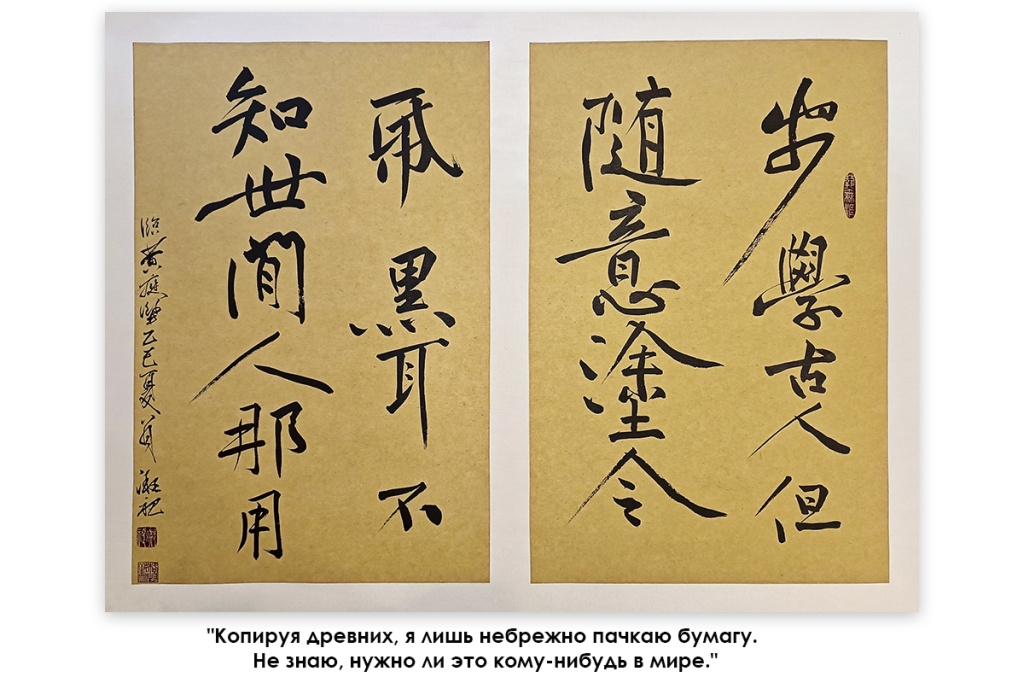 步學古人但
随意塗令
帋黑耳不
知世間人那用
臨黃庭堅乙巳夏
"Копируя древних, я лишь небрежно пачкаю бумагу.
Не знаю, нужно ли это кому-нибудь в мире."